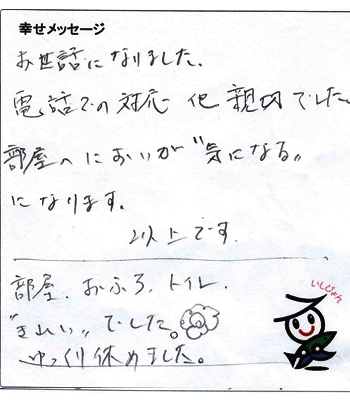 幸せメッセージ
お世話になりました。
電話での対応 他 親切でした。
部屋へにおいが"気になる"
になります。
以上です。
部屋、おふろ、トイレ、
"きれい"でした。
ゆっくり休めました。
いしじゃん